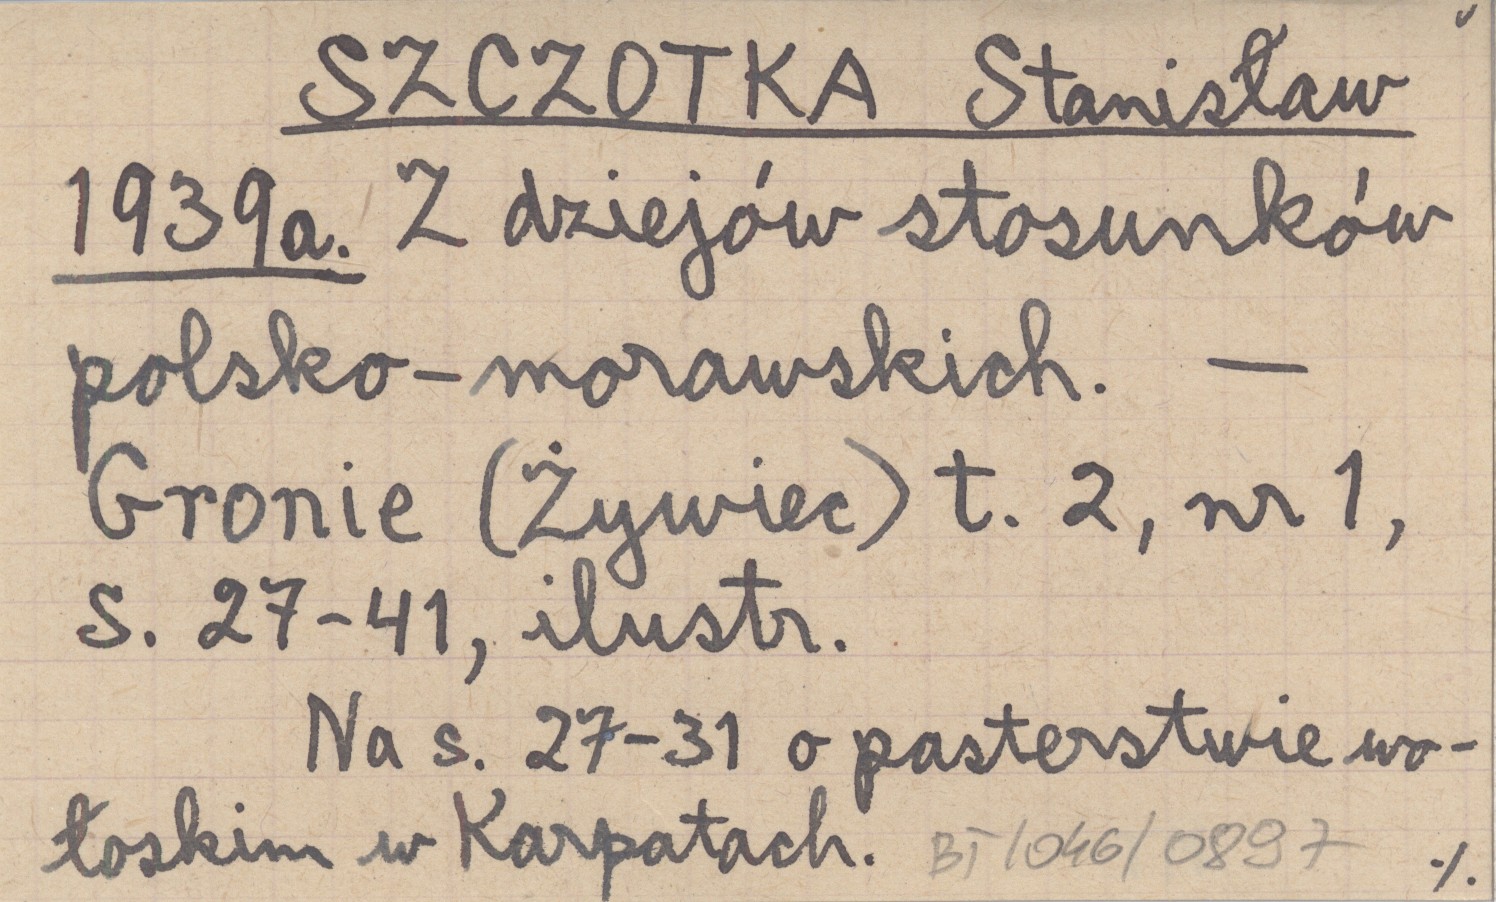 SZCZOTKA Stanisław
1939a. Z dziejów stosunków
polsko-morawskich. —
Gronie (Żywiec) t. 2, nr 1,
s. 27-41, ilustr.
Na s. 27-31 o pasterstwie wo-
łoskim w Karpatach. BT/046/0897 ./.